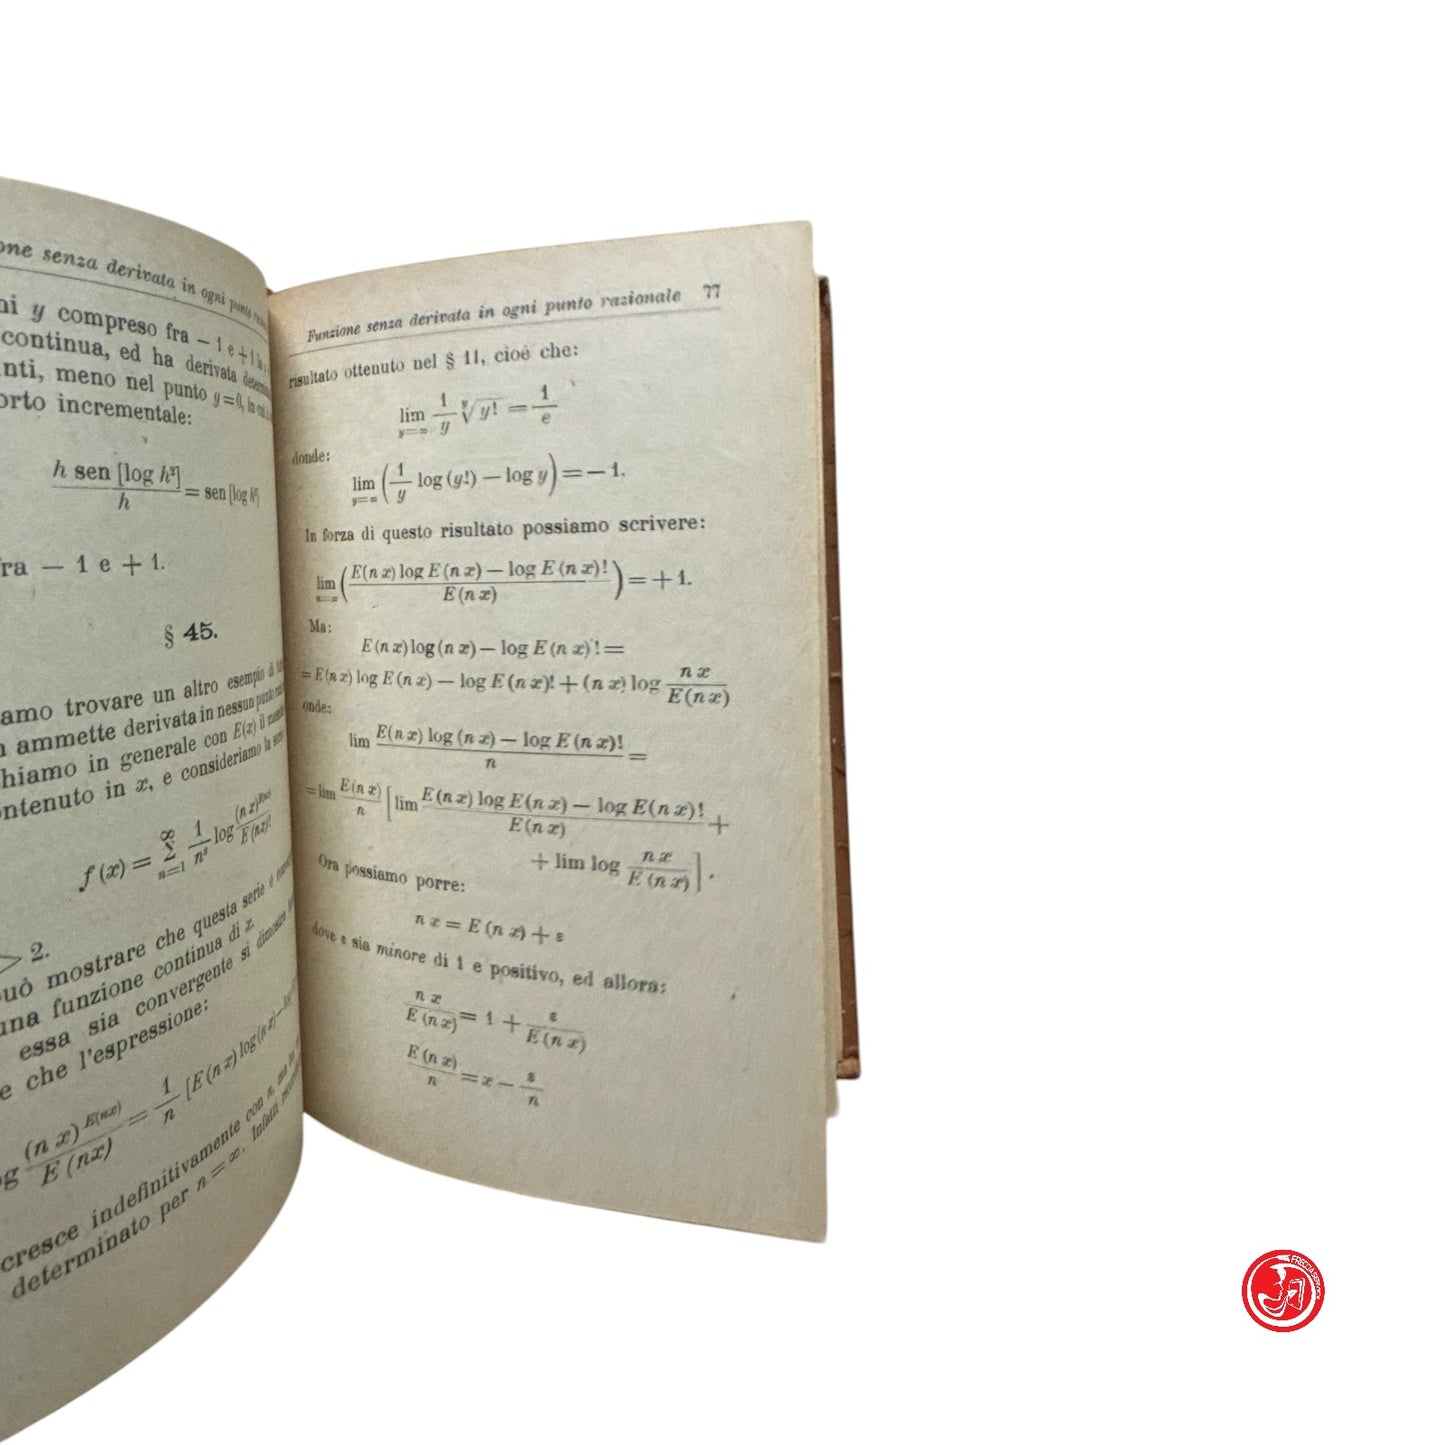 one senza derivata in ogni punto
ni y compreso fra — 1 e + 1
continua, ed ha derivata
nti, meno nel punto y = 0, in cui
orto incrementale:
h sen [log h²] / h = sen [log h²]
fra — 1 e + 1.
§ 45.
iamo trovare un altro esempio di
n ammette derivata in nessun punto
hiamo in generale con E(x) il
ontenuto in x, e consideriamo la
f (x) = ∞ Σ n=1 1/nˢ log (n x)^E(nx) / E (nx)!
> 2.
può mostrare che questa serie è
una funzione continua di x.
essa sia convergente si dimostra
e che l'espressione:
og (n x)^E(nx) / E (nx) = 1/n [E (n x) log (n x) — log
cresce indefinitivamente con n, ma
determinato per n = ∞. Infatti
Funzione senza derivata in ogni punto razionale 77
risultato ottenuto nel § 11, cioè che:
lim y=∞ 1/y ʸ√y! = 1/e
donde:
lim y=∞ (1/y log (y!) — log y) = — 1.
In forza di questo risultato possiamo scrivere:
lim n=∞ (E(n x) log E (n x) — log E (n x)! / E (n x)) = + 1.
Ma:
E (n x) log (n x) — log E (n x) ! =
= E (n x) log E (n x) — log E (n x)! + (n x) log n x / E (n x)
onde:
lim E(n x) log (n x) — log E (n x)! / n =
= lim E (n x) / n [lim E (n x) log E (n x) — log E (n x)! / E (n x) +
+ lim log n x / E (n x)].
Ora possiamo porre:
n x = E (n x) + ε
dove ε sia minore di 1 e positivo, ed allora:
n x / E (n x) = 1 + ε / E (n x)
E (n x) / n = x — ε / n
FRECCIA SERVICE